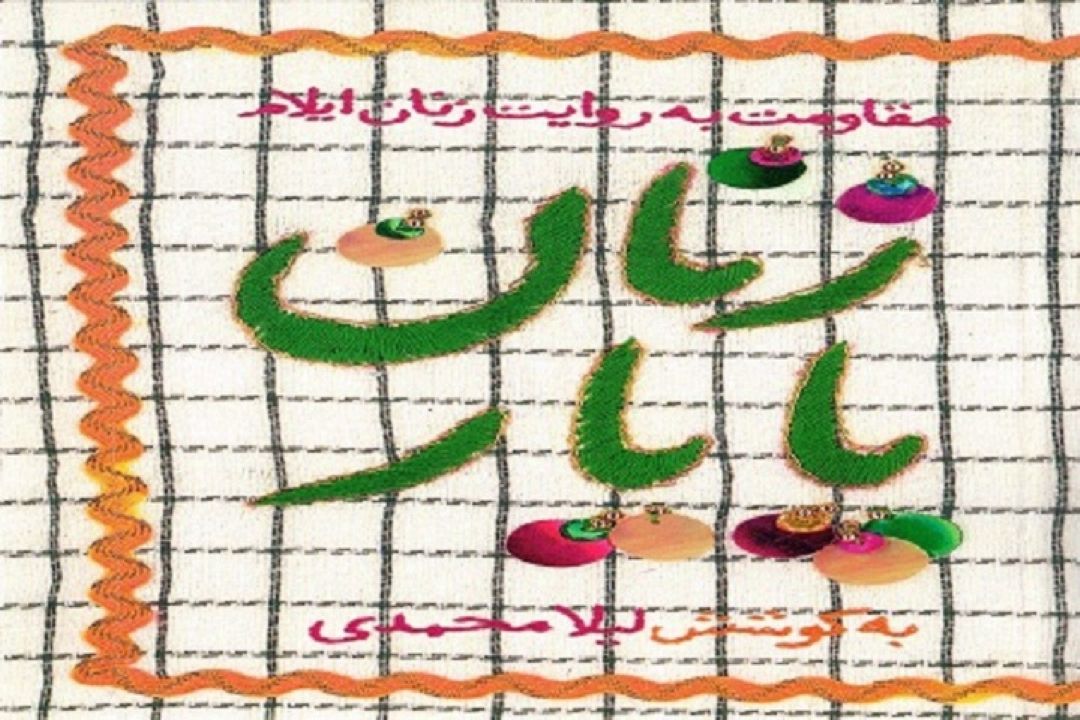 مقاومت به روایت زنان ایلام
زنان
پایار
به کوشش لیلا محمدی